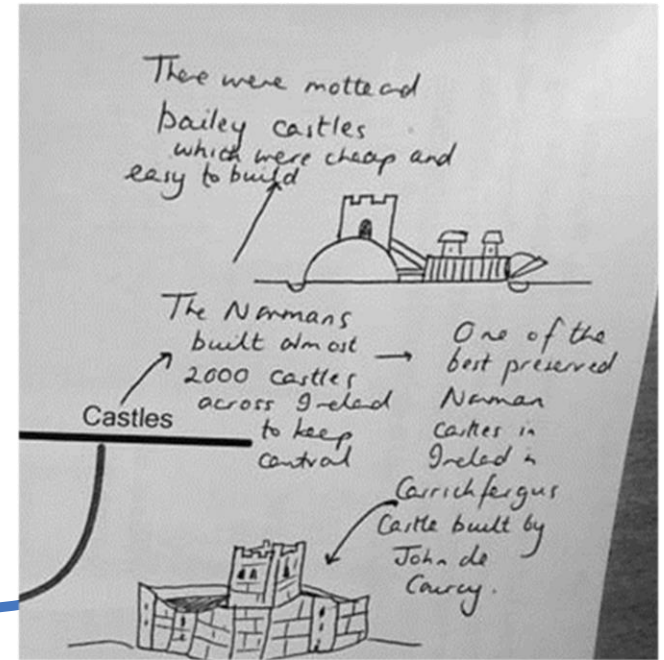 There were motte and
bailey castles
which were cheap and
easy to build
The Normans
built almost
2000 castles
across Ireland
to keep
control
Castles
One of the
best preserved
Norman
castles in
Ireland is
Carrickfergus
Castle built by
John de
Courcy.